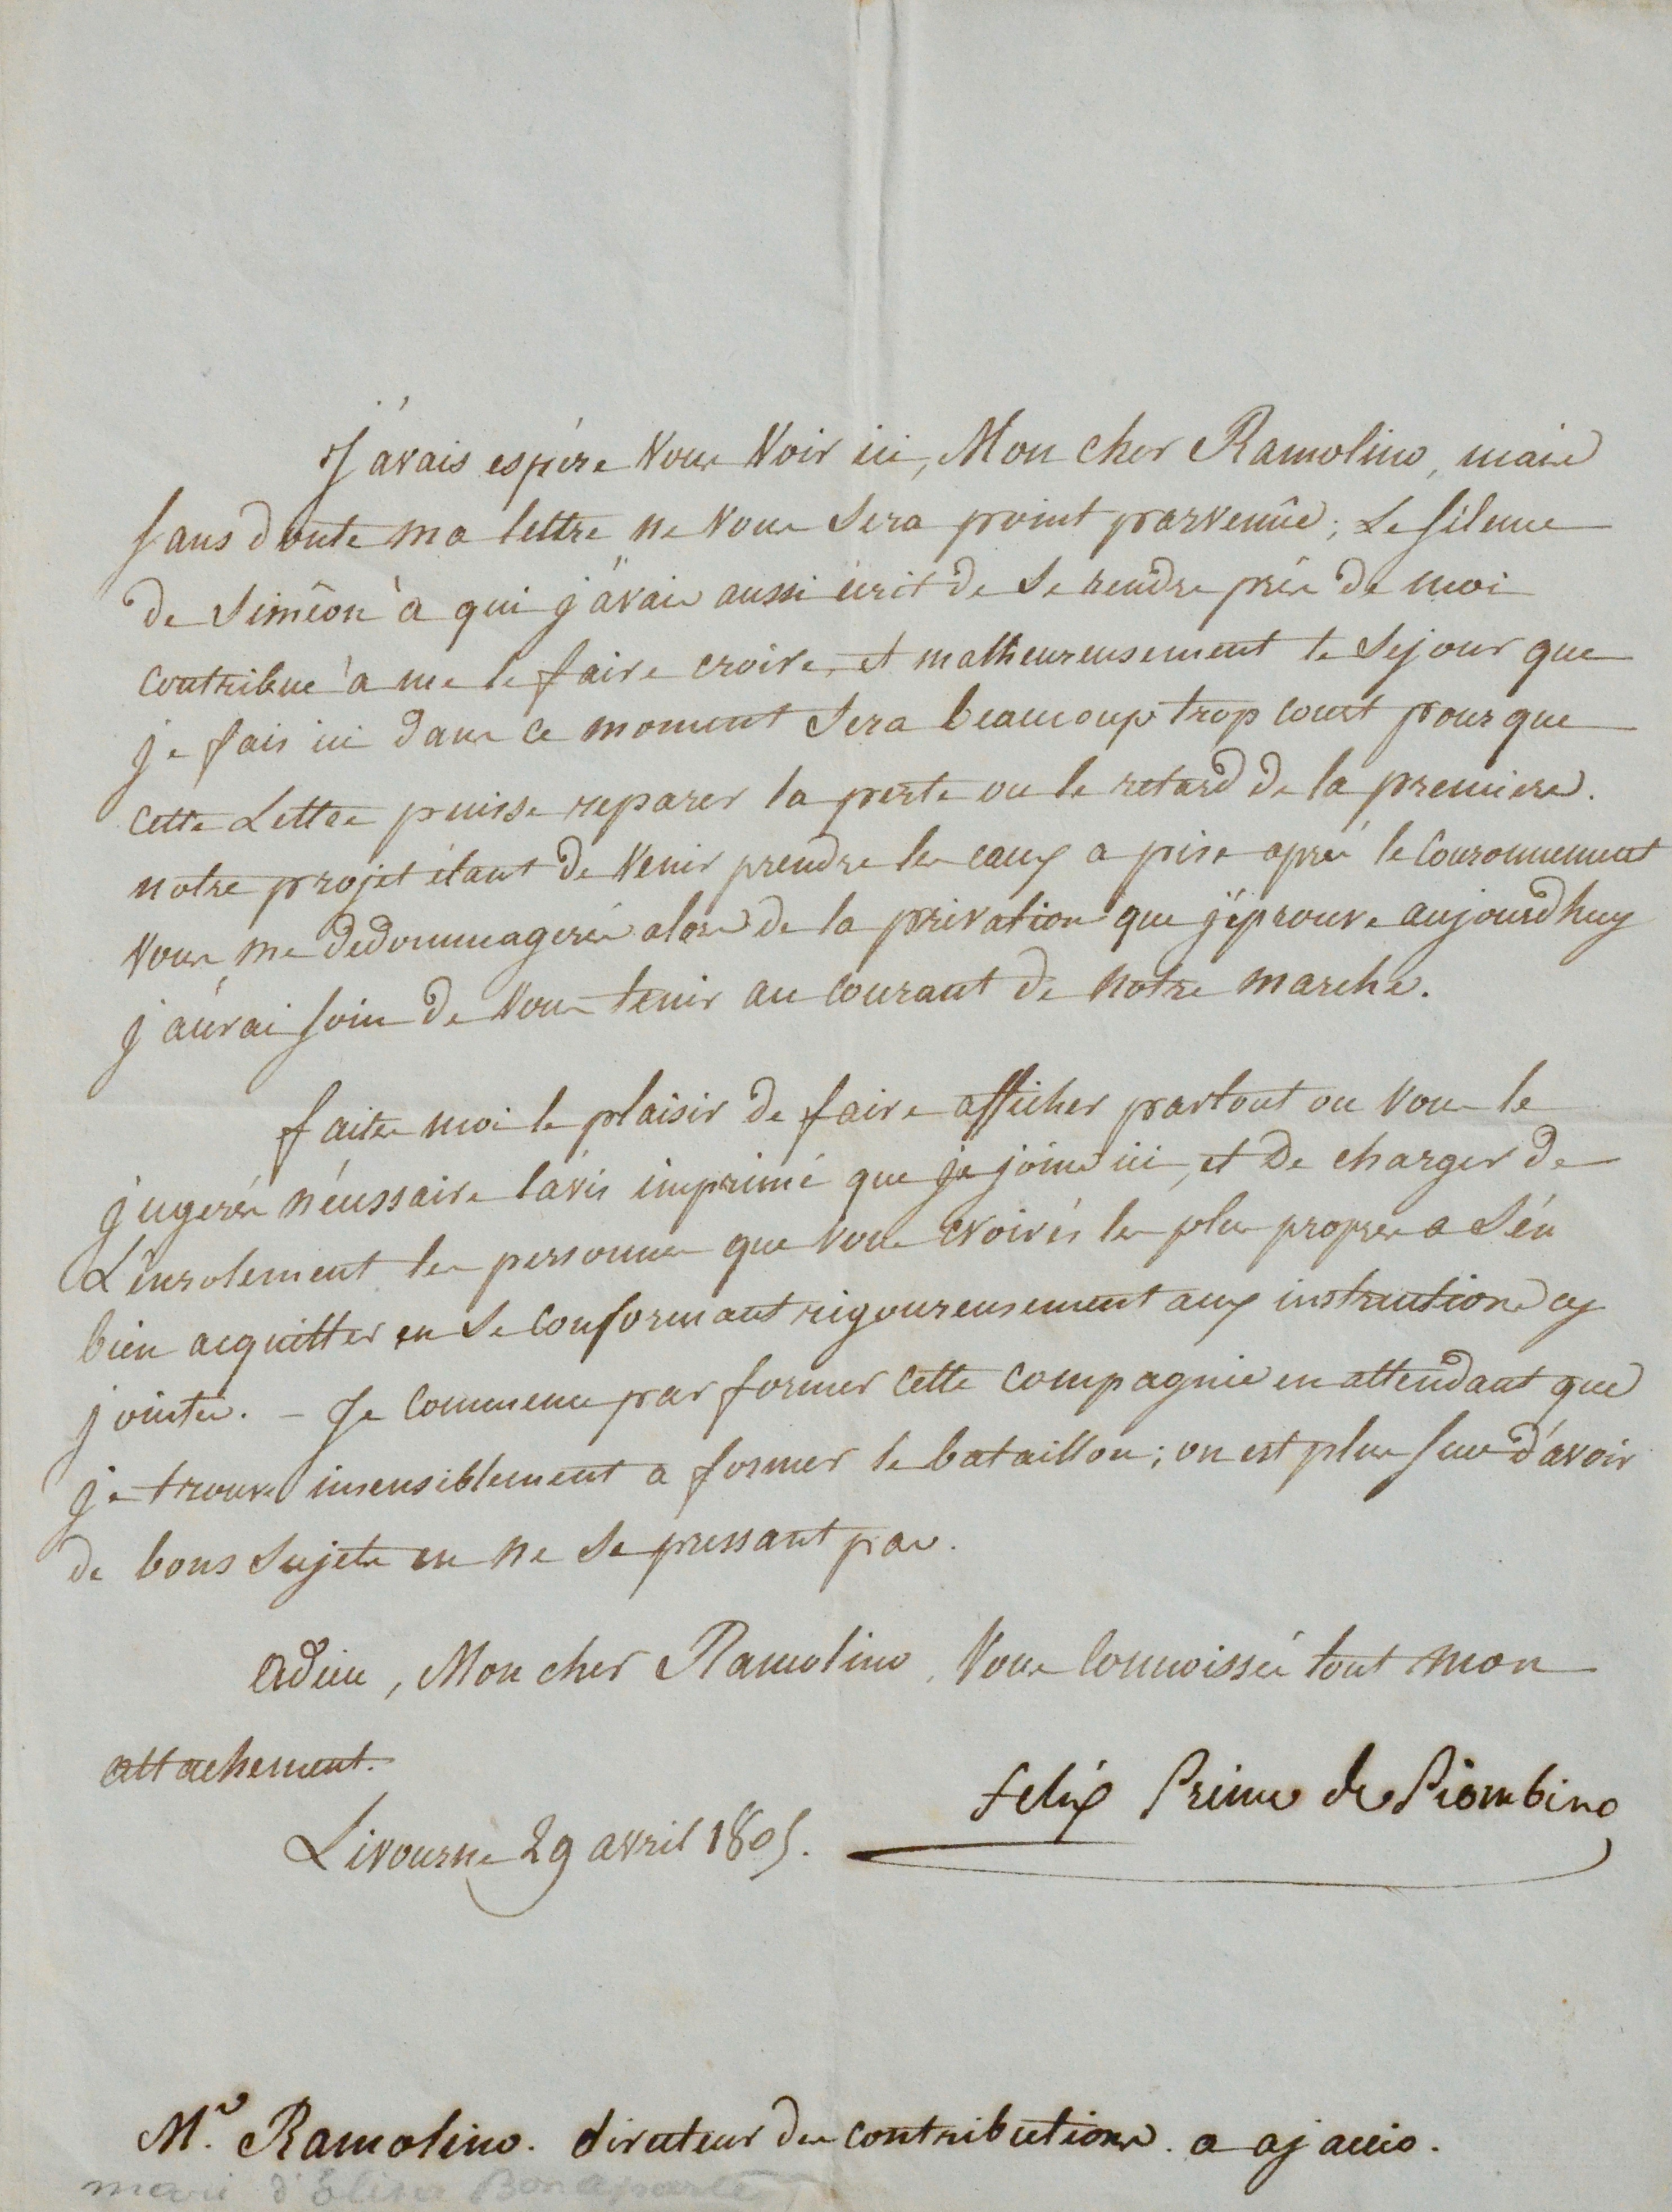 J'avais espéré vous voir ici, Mon cher Ramolino, mais
sans doute ma lettre ne vous sera point parvenûe; Le silence
de Siméon à qui j'avais aussi écrit de se rendre près de moi
contribue à me le faire croire, et malheureusement le séjour que
je fais ici dans ce moment sera beaucoup trop court pour que
cette Lettre puisse reparer la perte ou le retard de la premiere.
notre projet étant de venir prendre les eaux a pise après le Couronnement
vous me dedommagerés alors de la privation que j'éprouve aujourdhuy
j'aurai soin de vous tenir au courant de notre marche.
faites moi le plaisir de faire afficher partout ou vous le
jugerés nécessaire l'avis imprimé que je joins ici, et de charger de
L'enrolement les personnes que vous croirés les plus propres a s'én
bien acquitter en se conformant rigoureusement aux instructions cy
jointes. - Je commence par former cette compagnie en attendant que
je trouve insensiblement a former le bataillon; on est plus sur d'avoir
de bons sujets en ne se pressant pas.
adieu, Mon cher Ramolino, vous connoissés tout mon
attachement.
Felix Prince de Piombino
Livourne 29 avril 1805.
Mr. Ramolino. directeur des contributions. a ajaccio.
mari d'Elisa Bonaparte